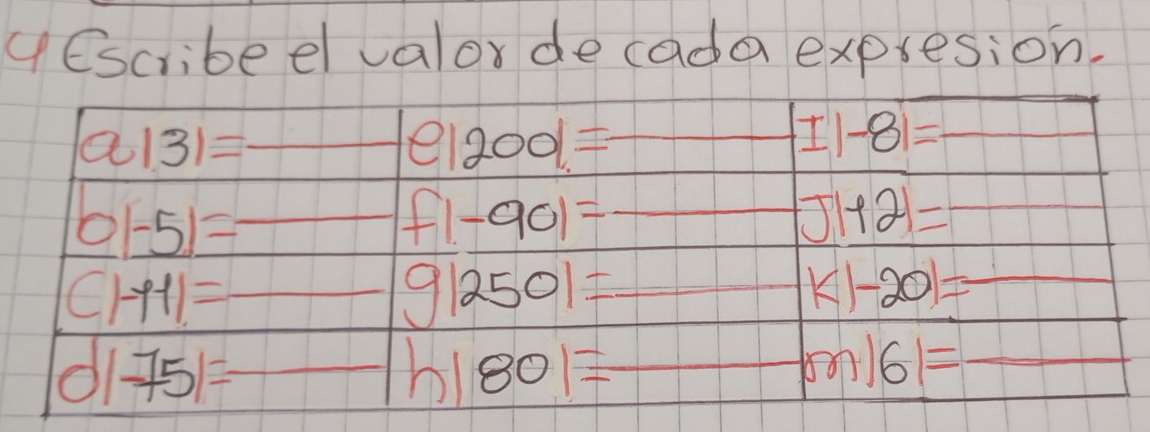 4 Escribe el valor de cada expresión.
a |3| = ____ e |200| = ____ I |-8| = ____
b |-5| = ____ f |-90| = ____ J |+2| = ____
c |-11| = ____ g |250| = ____ K |-20| = ____
d |-75| = ____ h |80| = ____ m |6| = ____